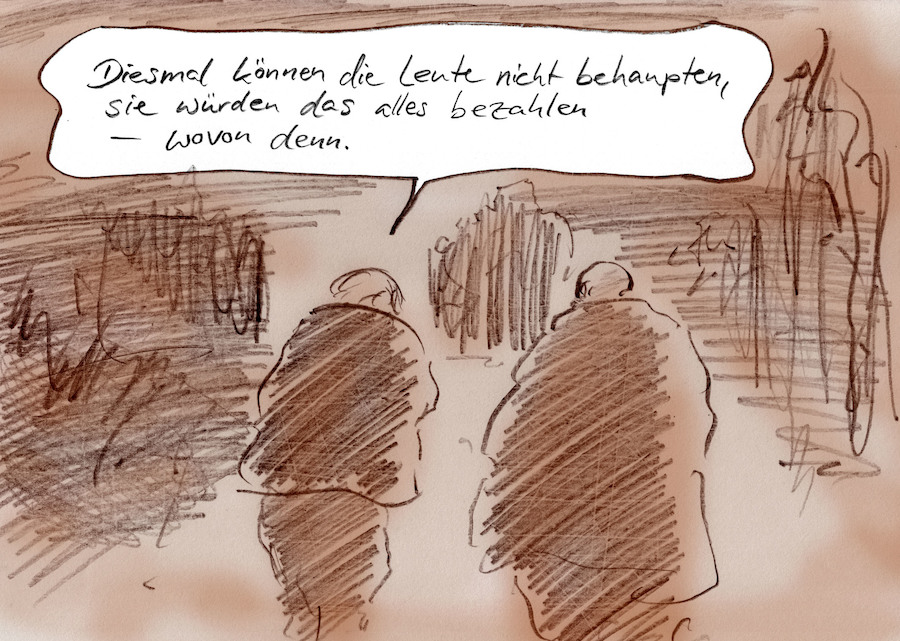 Diesmal können die Leute nicht behaupten,
sie würden das alles bezahlen
– wovon denn.